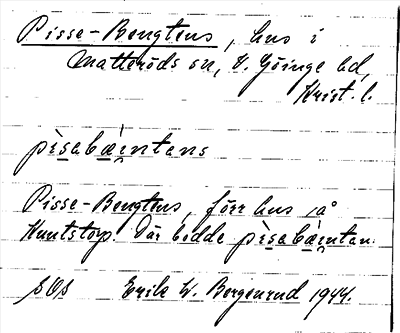 Pisse-Bengtens, hus i
Matteröds sn, V. Göinge hd,
Krist. l.
pìsabæ̀intans
Pisse-Bengtens, förr hus på
Huntstorp. Där bodde pìsabæ̀intan.
SOS Erik W. Bergenrud 1944.